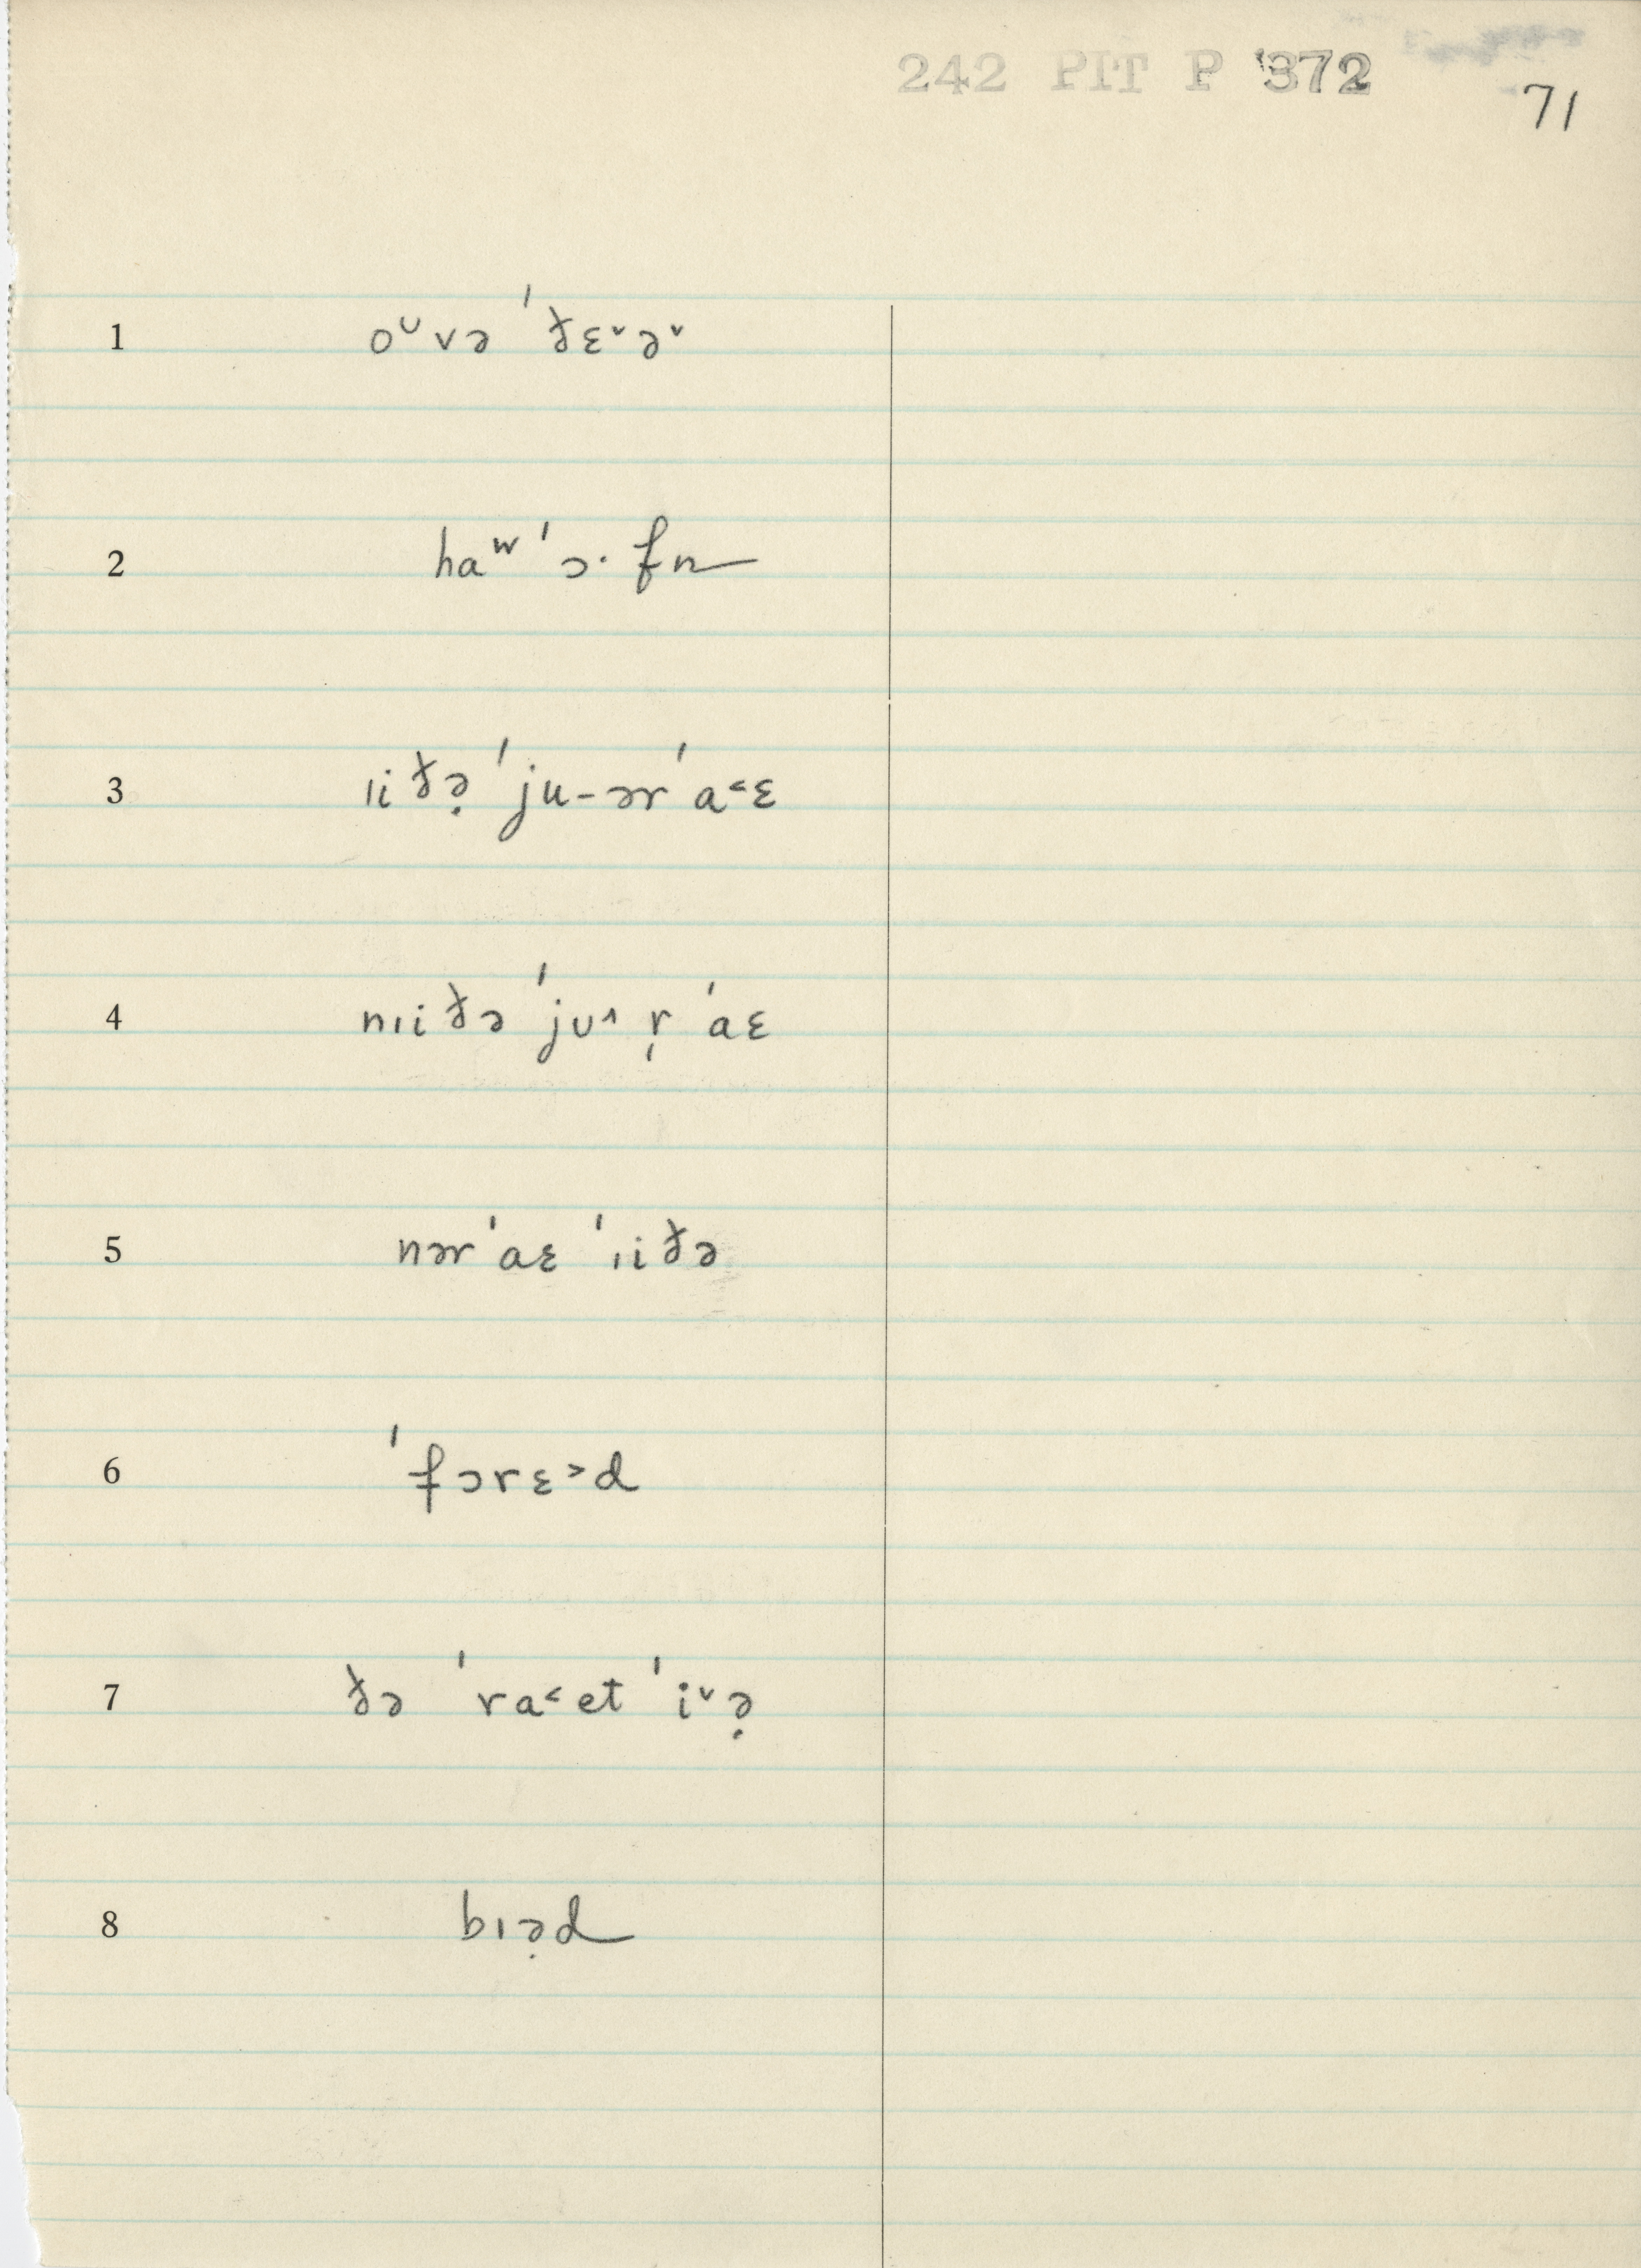 242 PIT P 372
71
1 oᴗvə ˈðɛ˅ə˅
2 haʷ ˈɔ· fn
3 ɪiðə̣ ˈju-ər ˈa˂ɛ
4 nɪiðə ˈjʊ˄ r̩ ˈaɛ
5 nər ˈaɛ ˈɪiðə
6 ˈfɔrɛ˃d
7 ðə ˈra˂et ˈi˅ə̣
8 bɪə̣d